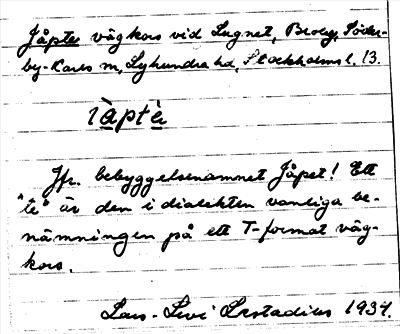 Jåpte vägkors vid Lugnet, Broby, Söder-
by-Karls sn, Lyhundra hd, Stockholms l. 13.
ıàptè
Jfr. bebyggelsenamnet Jåpet! Ett
"te" är den i dialekten vanliga be-
nämningen på ett T-format väg-
kors.
Lars-Levi Læstadius 1934.